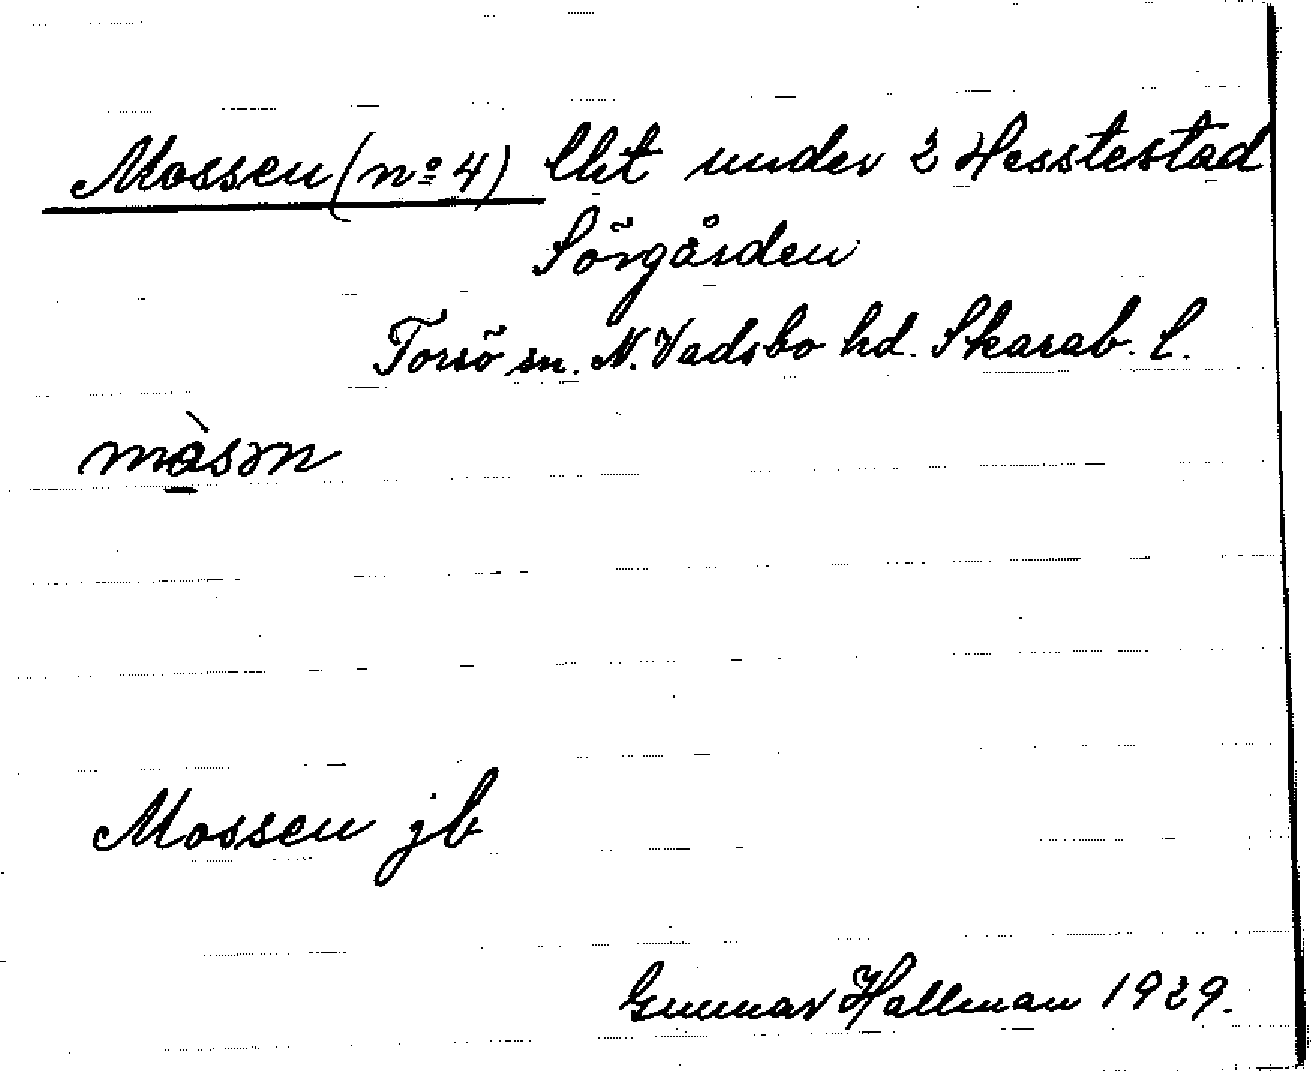 Mossen (nº 4) lht under 2 Hesstestad
Sörgården
Torsö sn. N. Vadsbo hd. Skarab. l.
mòsən
Mossen jb
Gunnar Hallman 1929.